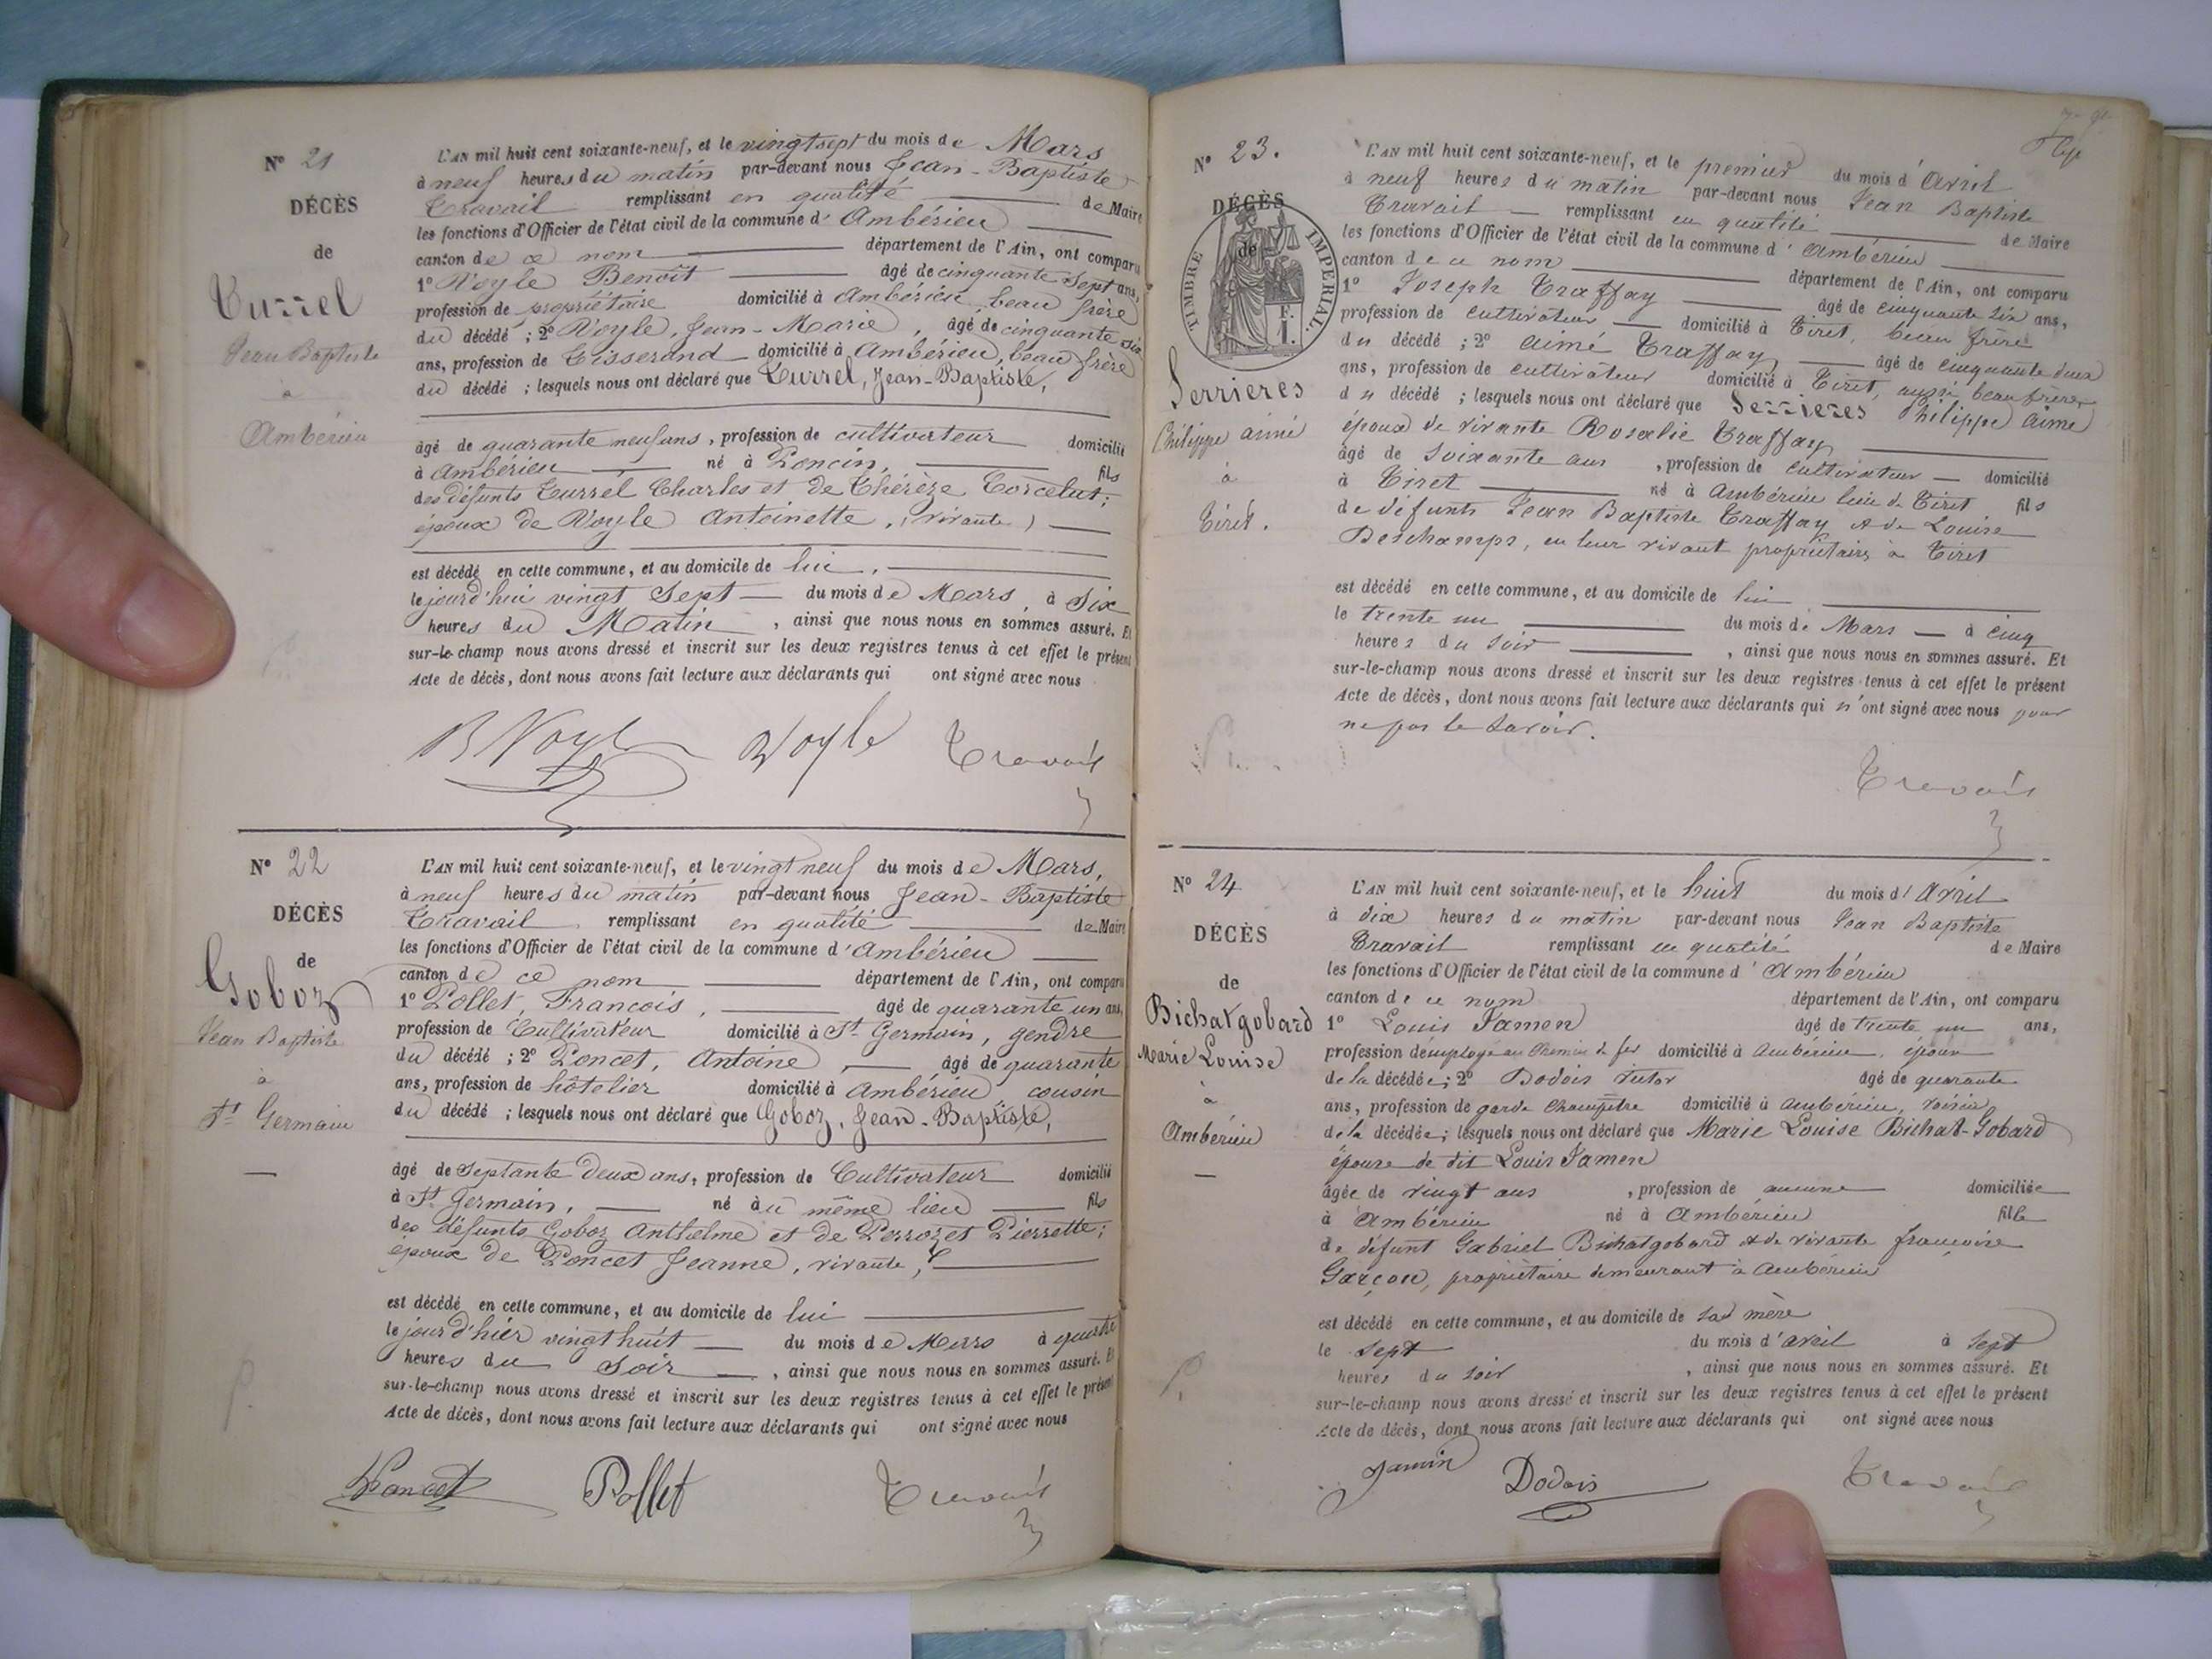 N° 21
DÉCÈS
de
Turrel
Jean Baptiste
à
Ambérieu
L'AN mil huit cent soixante-neuf, et le vingt sept du mois de Mars
à neuf heures du matin par-devant nous Jean-Baptiste
Travail remplissant en qualité de Maire
les fonctions d'Officier de l'état civil de la commune d'Ambérieu
canton de ce nom département de l'Ain, ont comparu
1° Noyle Benoît âgé de cinquante sept ans,
profession de propriétaire domicilié à Ambérieu beau frère
du décédé ; 2° Noyle, Jean-Marie, âgé de cinquante six
ans, profession de Tisserand domicilié à Ambérieu, beau frère
du décédé ; lesquels nous ont déclaré que Turrel, Jean-Baptiste,
âgé de quarante neuf ans, profession de cultivateur domicilié
à Ambérieu né à Poncin, fils
des défunts Turrel Charles et de Thérèze Torcelut;
époux de Noyle Antoinette, (vivante)
est décédé en cette commune, et au domicile de lui,
le jourd'hui vingt Sept du mois de Mars, à Six
heures du Matin, ainsi que nous nous en sommes assuré. Et
sur-le-champ nous avons dressé et inscrit sur les deux registres tenus à cet effet le présent
Acte de décès, dont nous avons fait lecture aux déclarants qui ont signé avec nous
B Noyle Noyle Travail
N° 22
DÉCÈS
de
Goboz
Jean Baptiste
à
St Germain
L'AN mil huit cent soixante-neuf, et le vingt neuf du mois de Mars,
à neuf heures du matin par-devant nous Jean-Baptiste
Travail remplissant en qualité de Maire
les fonctions d'Officier de l'état civil de la commune d'Ambérieu
canton de ce nom département de l'Ain, ont comparu
1° Pollet, François, âgé de quarante un ans,
profession de Cultivateur domicilié à St Germain, gendre
du décédé ; 2° Poncet, Antoine, âgé de quarante
ans, profession de hôtelier domicilié à Ambérieu cousin
du décédé ; lesquels nous ont déclaré que Goboz, Jean-Baptiste,
âgé de Septante deux ans, profession de Cultivateur domicilié
à St Germain, né au même lieu fils
des défunts Goboz Anthelme et de Perrozet Pierrette;
époux de Poncet Jeanne, vivante,
est décédé en cette commune, et au domicile de lui
le jour d'hier vingt huit du mois de Mars à quatre
heures du Soir, ainsi que nous nous en sommes assuré. Et
sur-le-champ nous avons dressé et inscrit sur les deux registres tenus à cet effet le présent
Acte de décès, dont nous avons fait lecture aux déclarants qui ont signé avec nous
Poncet Pollet Travail
N° 23.
DÉCÈS
de
TIMBRE IMPERIAL.
F. I.
Serrieres
Philippe aimé
à
Tiret.
L'AN mil huit cent soixante-neuf, et le premier du mois d'Avril
à neuf heures du matin par-devant nous Jean Baptiste
Travail remplissant en qualité de Maire
les fonctions d'Officier de l'état civil de la commune d'Ambérieu
canton de ce nom département de l'Ain, ont comparu
1° Joseph Traffay âgé de cinquante six ans,
profession de cultivateur domicilié à Tiret, beau frère
du décédé ; 2° aimé Traffay âgé de cinquante deux
ans, profession de cultivateur domicilié à Tiret, aussi beau frère
du décédé ; lesquels nous ont déclaré que Serrieres Philippe aimé
époux de vivante Rosalie Traffay
âgé de soixante ans, profession de cultivateur domicilié
à Tiret né à Ambérieu lieu de Tiret fils
de défunts Jean Baptiste Traffay et de Louise
Deschamps, en leur vivant propriétaires à Tiret
est décédé en cette commune, et au domicile de lui
le trente un du mois de Mars à cinq
heures du soir, ainsi que nous nous en sommes assuré. Et
sur-le-champ nous avons dressé et inscrit sur les deux registres tenus à cet effet le présent
Acte de décès, dont nous avons fait lecture aux déclarants qui n'ont signé avec nous pour
ne pas le savoir.
Travail
N° 24
DÉCÈS
de
Bichatgobard
Marie Louise
à
Ambérieu
L'AN mil huit cent soixante-neuf, et le huit du mois d'Avril
à dix heures du matin par-devant nous Jean Baptiste
Travail remplissant en qualité de Maire
les fonctions d'Officier de l'état civil de la commune d'Ambérieu
canton de ce nom département de l'Ain, ont comparu
1° Louis Jamen âgé de trente un ans,
profession d'employé au chemin de fer domicilié à Ambérieu, époux
de la décédée ; 2° Dodois Victor âgé de quarante
ans, profession de garde champêtre domicilié à Ambérieu, voisin
de la décédée ; lesquels nous ont déclaré que Marie Louise Bichat-Gobard
épouse de dit Louis Jamen
âgée de vingt ans, profession de aucune domiciliée
à Ambérieu né à Ambérieu fille
de défunt Gabriel Bichatgobard et de vivante françoise
Garçon, propriétaire demeurant à Ambérieu
est décédé en cette commune, et au domicile de sa mère
le sept du mois d'avril à sept
heures du soir, ainsi que nous nous en sommes assuré. Et
sur-le-champ nous avons dressé et inscrit sur les deux registres tenus à cet effet le présent
Acte de décès, dont nous avons fait lecture aux déclarants qui ont signé avec nous
Jamin Dodois Travail